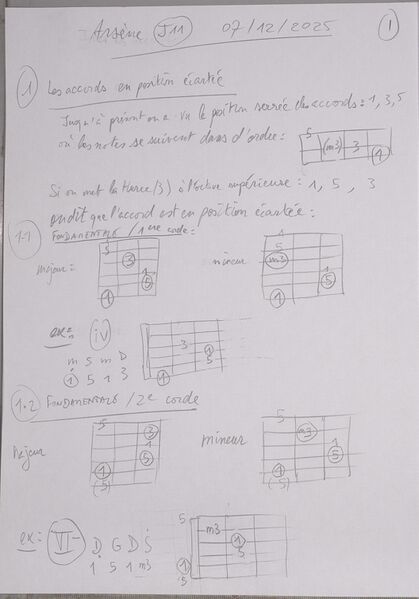 Arsène J11 07/12/2025 1
1 Les accords en position écartée
Jusqu'à présent on a vu la position serrée des accords = 1, 3, 5
où les notes se suivent dans l'ordre :
5 (m3) 3 1
Si on met la tierce (3) à l'octave supérieure : 1, 5, 3
on dit que l'accord est en position écartée :
1.1 FONDAMENTALE / 1ère corde :
majeur = 5 3 1 5 1
mineur = 1 5 m3 1 5 1
ex : IV
m s m D
1 5 1 3
3 1 5 1
1.2 FONDAMENTALE / 2e corde
Majeur 5 3 1 5 1 (5)
mineur 5 m3 1 5 1 (5)
ex : VI- D G D S
1 5 1 m3
5 m3 1 5 1 5